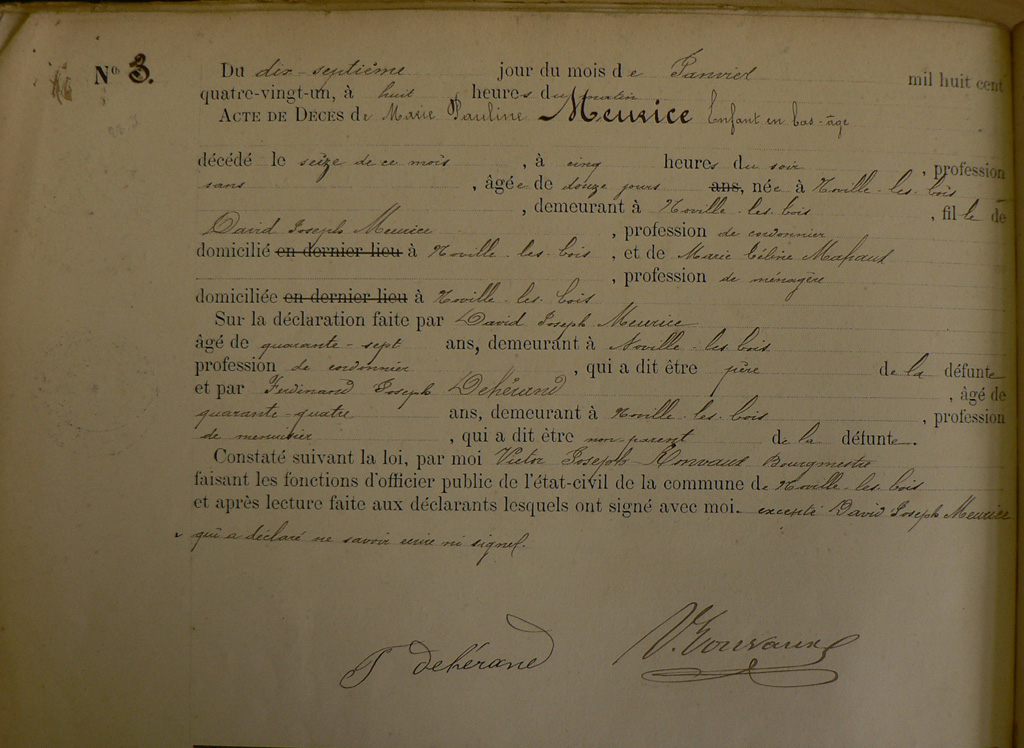 N° 3.
Du dix-septième jour du mois de Janvier mil huit cent
quatre-vingt-un, à huit heures du matin
ACTE DE DÉCÈS de Marie Pauline Meurice Enfant en bas-âge
décédé le seize de ce mois, à cinq heures du soir, profession
sans, âgée de douze jours ans, née à Noville-les-bois
, demeurant à Noville-les-bois, fille de
David Joseph Meurice, profession de cordonnier
domicilié en dernier lieu à Noville-les-bois, et de Marie Céline
, profession de ménagère
domiciliée en dernier lieu à Noville-les-bois
Sur la déclaration faite par David Joseph Meurice
âgé de quarante-sept ans, demeurant à Noville-les-bois
profession de cordonnier, qui a dit être père de la défunte
et par Ferdinand Joseph Dehérand, âgé de
quarante-quatre ans, demeurant à Noville-les-bois, profession
de menuisier, qui a dit être non-parent de la défunte.
Constaté suivant la loi, par moi Victor Joseph Bourgmestre
faisant les fonctions d'officier public de l'état-civil de la commune de Noville-les-bois
et après lecture faite aux déclarants lesquels ont signé avec moi. excepté David Joseph Meurice
qui a déclaré ne savoir écrire ni signer.
dehérand